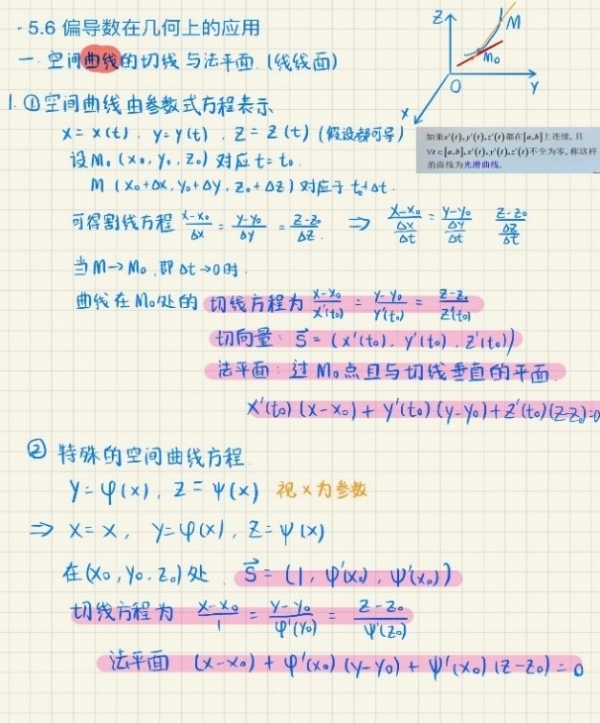 · 5.6 偏导数在几何上的应用
一. 空间曲线的切线与法平面 (线线面)
Z
M
M₀
O
Y
X
1. ①空间曲线由参数式方程表示
x = x(t). y = y(t). z = z(t) (假设都可导)
如果x'(t)、y'(t)、z'(t)都在[a,b]上连续, 且
∀t∈[a,b], x'(t)、y'(t)、z'(t)不全为零, 称这样
的曲线为光滑曲线.
设M₀ (x₀, y₀, z₀) 对应t = t₀.
M (x₀+Δx, y₀+Δy, z₀+Δz) 对应于 t₀+Δt.
可得割线方程 (x-x₀)/Δx = (y-y₀)/Δy = (z-z₀)/Δz. ⇒ (x-x₀)/(Δx/Δt) = (y-y₀)/(Δy/Δt) (z-z₀)/(Δz/Δt)
当M→M₀, 即Δt→0时.
曲线在M₀处的 切线方程为 (x-x₀)/x'(t₀) = (y-y₀)/y'(t₀) = (z-z₀)/z'(t₀)
切向量: s⃗ = (x'(t₀). y'(t₀). z'(t₀))
法平面: 过M₀点且与切线垂直的平面.
x'(t₀)(x-x₀) + y'(t₀)(y-y₀) + z'(t₀)(z-z₀)=0
② 特殊的空间曲线方程.
y = φ(x), z = ψ(x) 视x为参数
⇒ x = x, y = φ(x), z = ψ(x)
在(x₀, y₀, z₀)处. s⃗ = (1, φ'(x₀), ψ'(x₀))
切线方程为 (x-x₀)/1 = (y-y₀)/φ'(y₀) = (z-z₀)/ψ'(z₀)
法平面 (x-x₀) + φ'(x₀)(y-y₀) + ψ'(x₀)(z-z₀) = 0